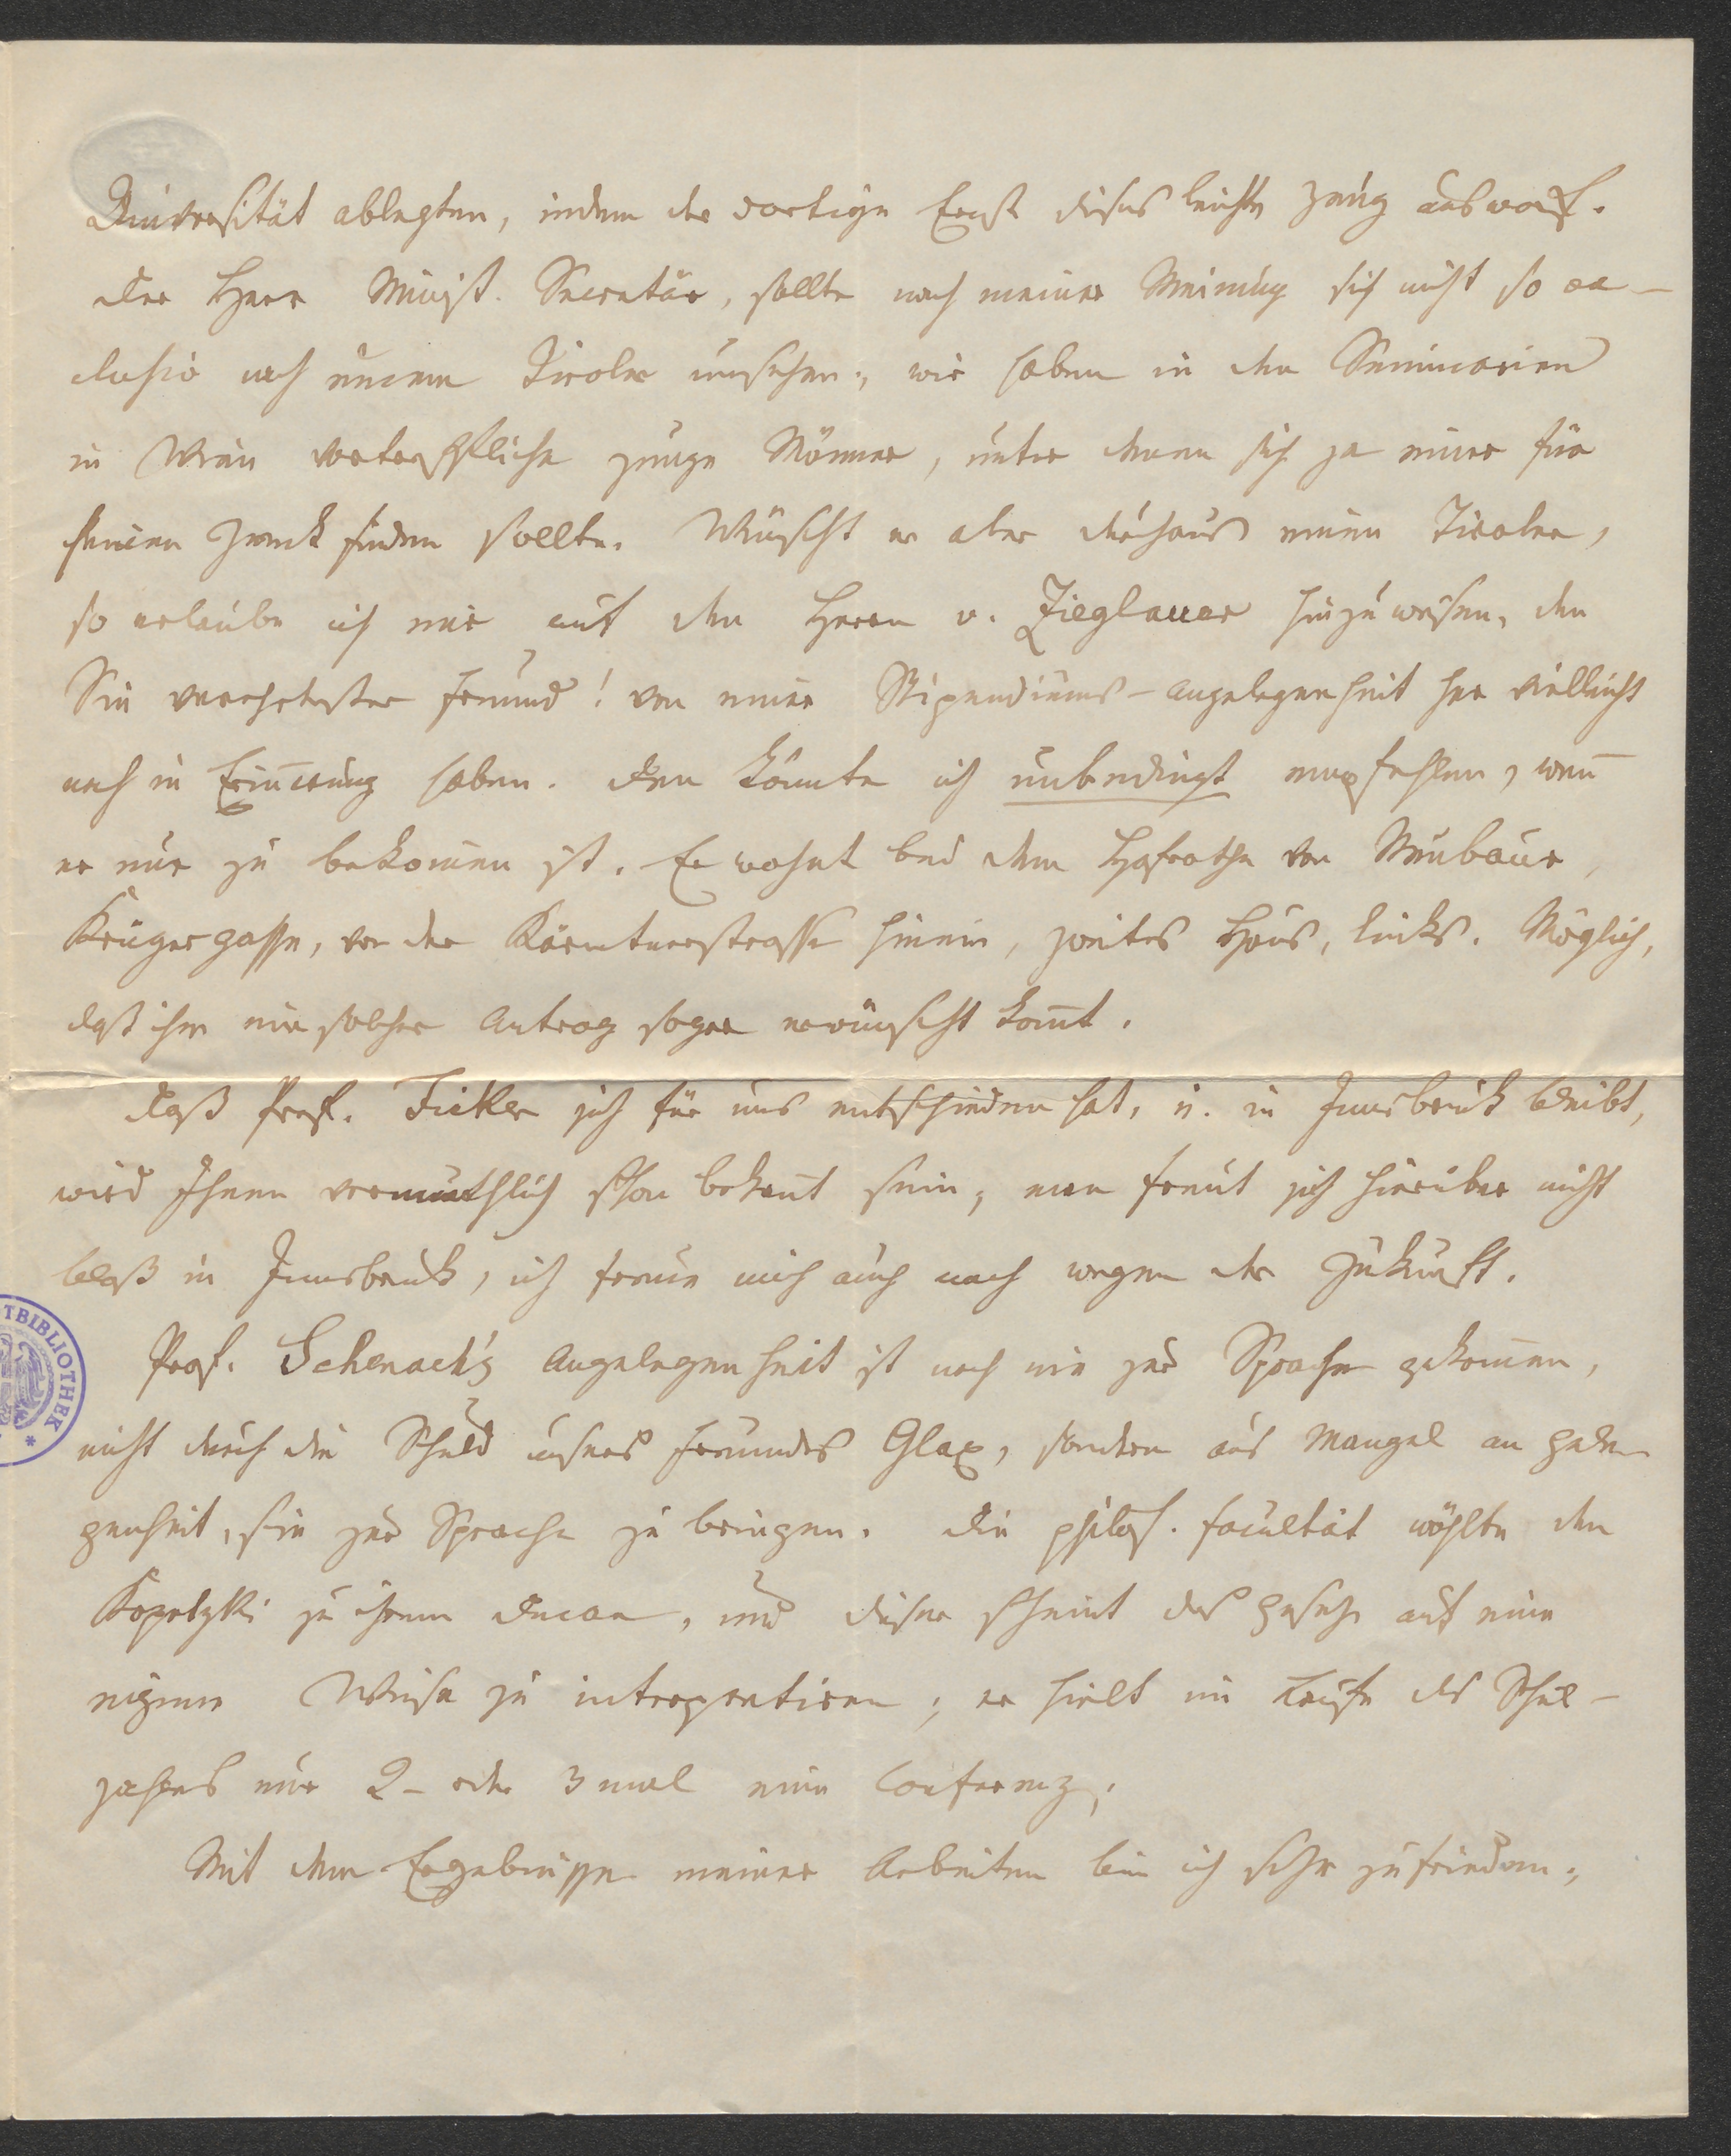 Universität ablegten, indem der dortige Ernst dieses leichte Zeug auswarf.
Der Herr Minist. Secretär, sollte nach meiner Meinung sich nicht so ex-
clusiv nach einem Tiroler umsehen; wir haben in den Seminarien
in Wien vortreffliche junge Männer, unter denen sich ja einer für
seinen Zweck finden sollte. Wünscht er aber durchaus einen Tiroler,
so erlaube ich mir auf den Herrn v. Zieglauer hinzuweisen, den
Sie verehrtester Freund! von einer Stipendiums-Angelegenheit her vielleicht
noch in Erin̄erung haben. Den könnte ich unbedingt empfehlen, wen̄
er nur zu bekom̄en ist. Er wohnt bei dem Hofrathe von
Krugergasse, von der Kärntnerstrasse hinein, zweites Haus, links. Möglich,
daß ihm ein solcher Antrag sogar erwünscht kom̄t.
Daß Prof. Ficker sich für uns entschieden hat, u. in Innsbruck bleibt,
wird Ihnen vermuthlich schon bekan̄t sein; man freut sich hierüber nicht
bloß in Innsbruck, ich freue mich auch noch wegen der Zukunft.
Prof. Schenach's Angelegenheit ist noch nie zur Sprache gekom̄en,
nicht durch die Schuld unseres Freundes Glax, sondern aus Mangel an Gele-
genheit, sie zur Sprache zu bringen. Die philos. Facultät wählte den
Kopetzki zu ihrem Decan, und dieser scheint das Gesetz auf eine
eigene Weise zu interpretiren; er hielt im Laufe des Schul-
jahres nur 2- oder 3 mal eine Conferenz.
Mit dem Ergebnisse meiner Arbeiten bin ich sehr zufrieden;
TBIBLIOTHEK